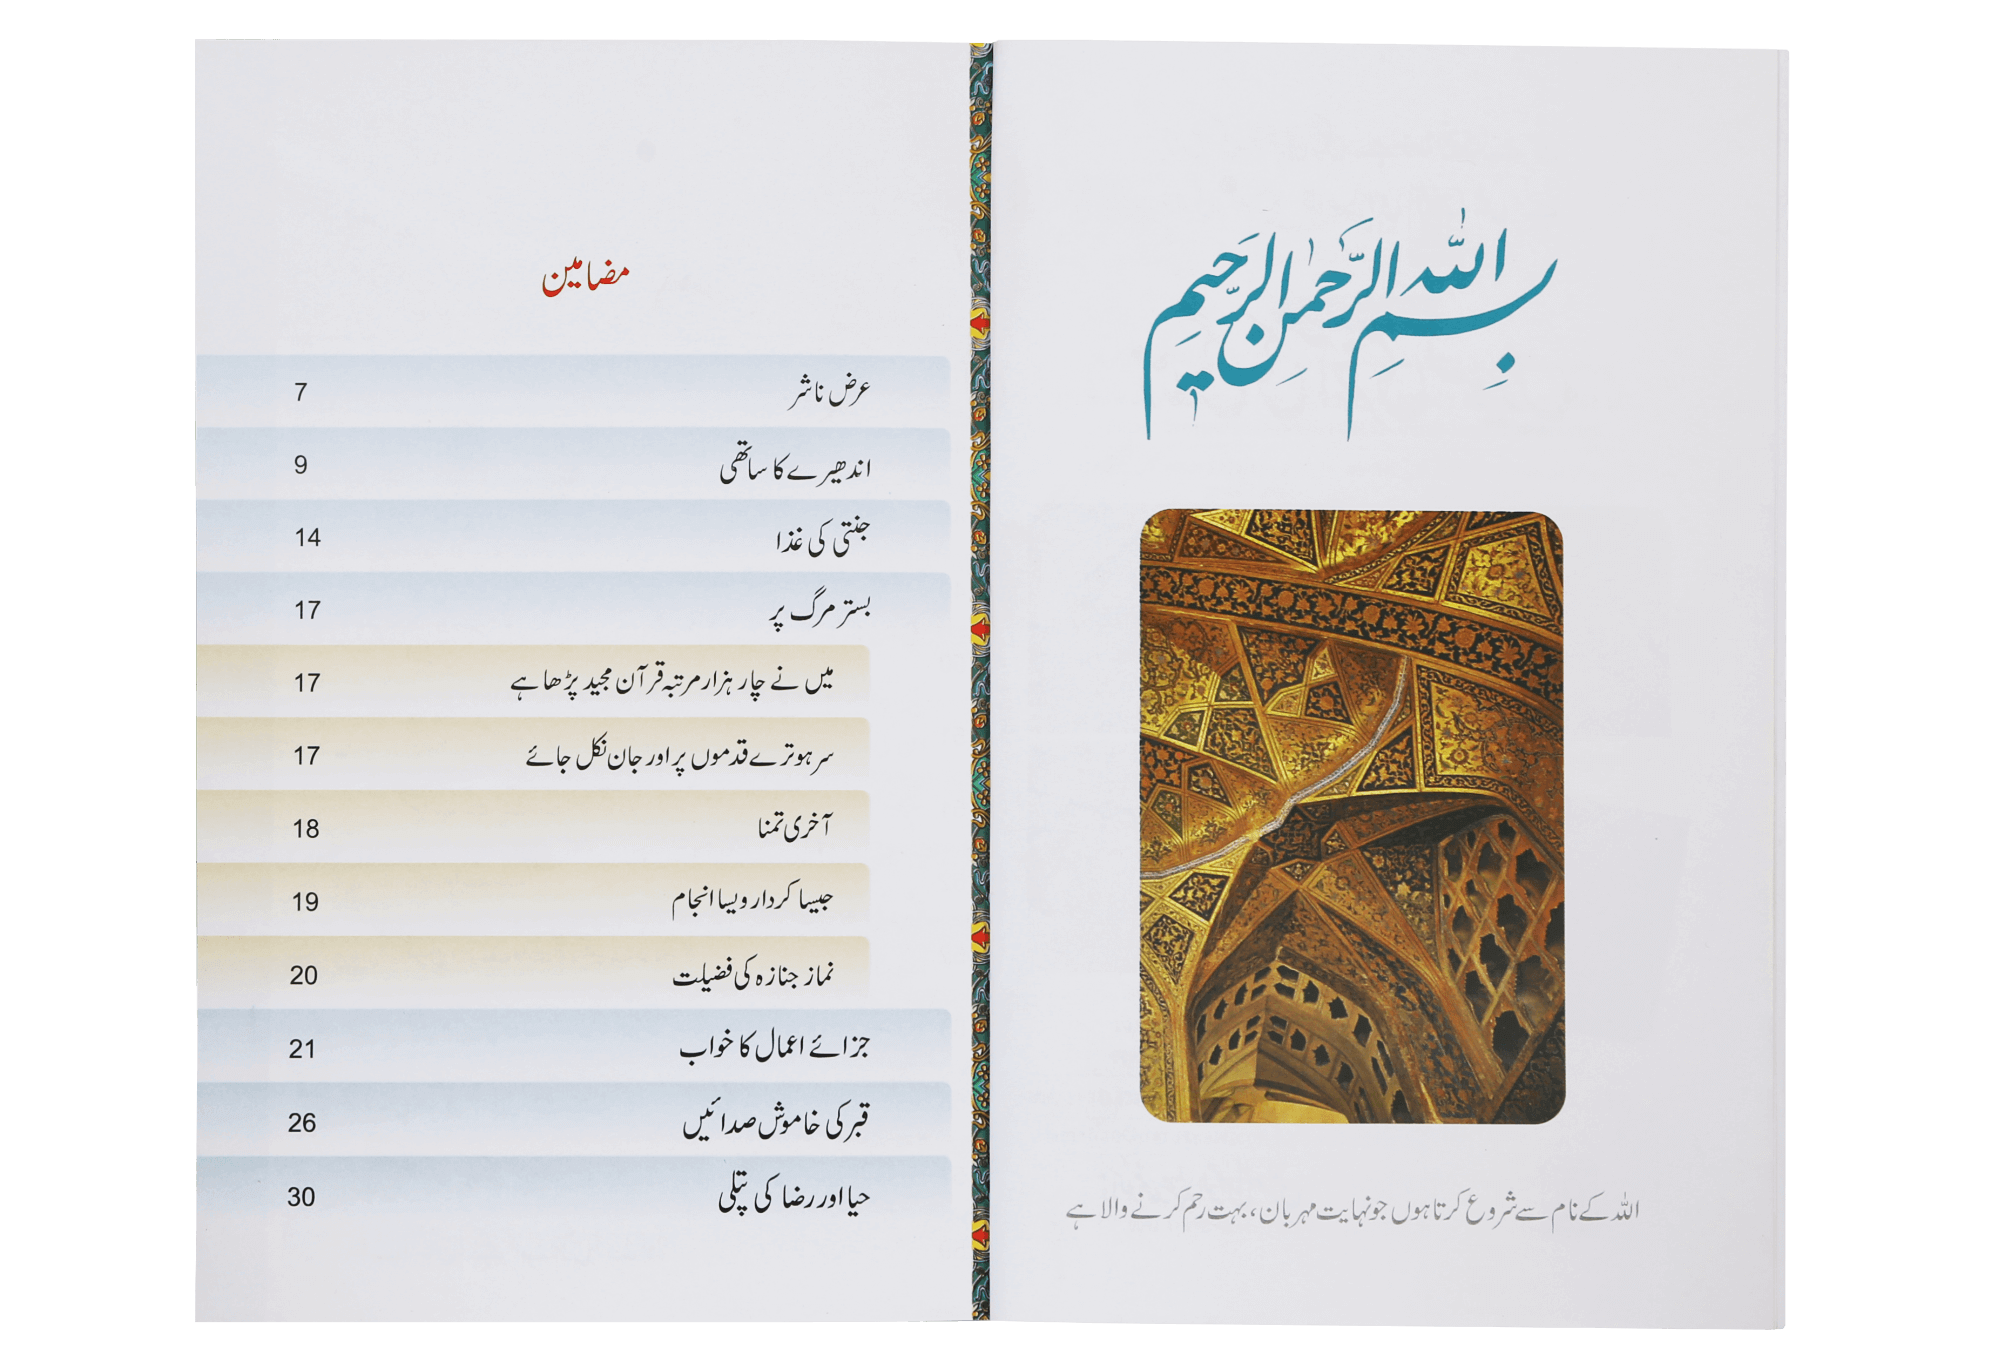 بسم الله الرحمٰن الرحیم
اللہ کے نام سے شروع کرتا ہوں جو نہایت مہربان، بہت رحم کرنے والا ہے
مضامین
عرض ناشر 7
اندھیرے کا ساتھی 9
جنتی کی غذا 14
بستر مرگ پر 17
میں نے چار ہزار مرتبہ قرآن مجید پڑھا ہے 17
سر ہو ترے قدموں پر اور جان نکل جائے 17
آخری تمنا 18
جیسا کردار ویسا انجام 19
نماز جنازہ کی فضیلت 20
جزائے اعمال کا خواب 21
قبر کی خاموش صدائیں 26
حیا اور رضا کی پتلی 30